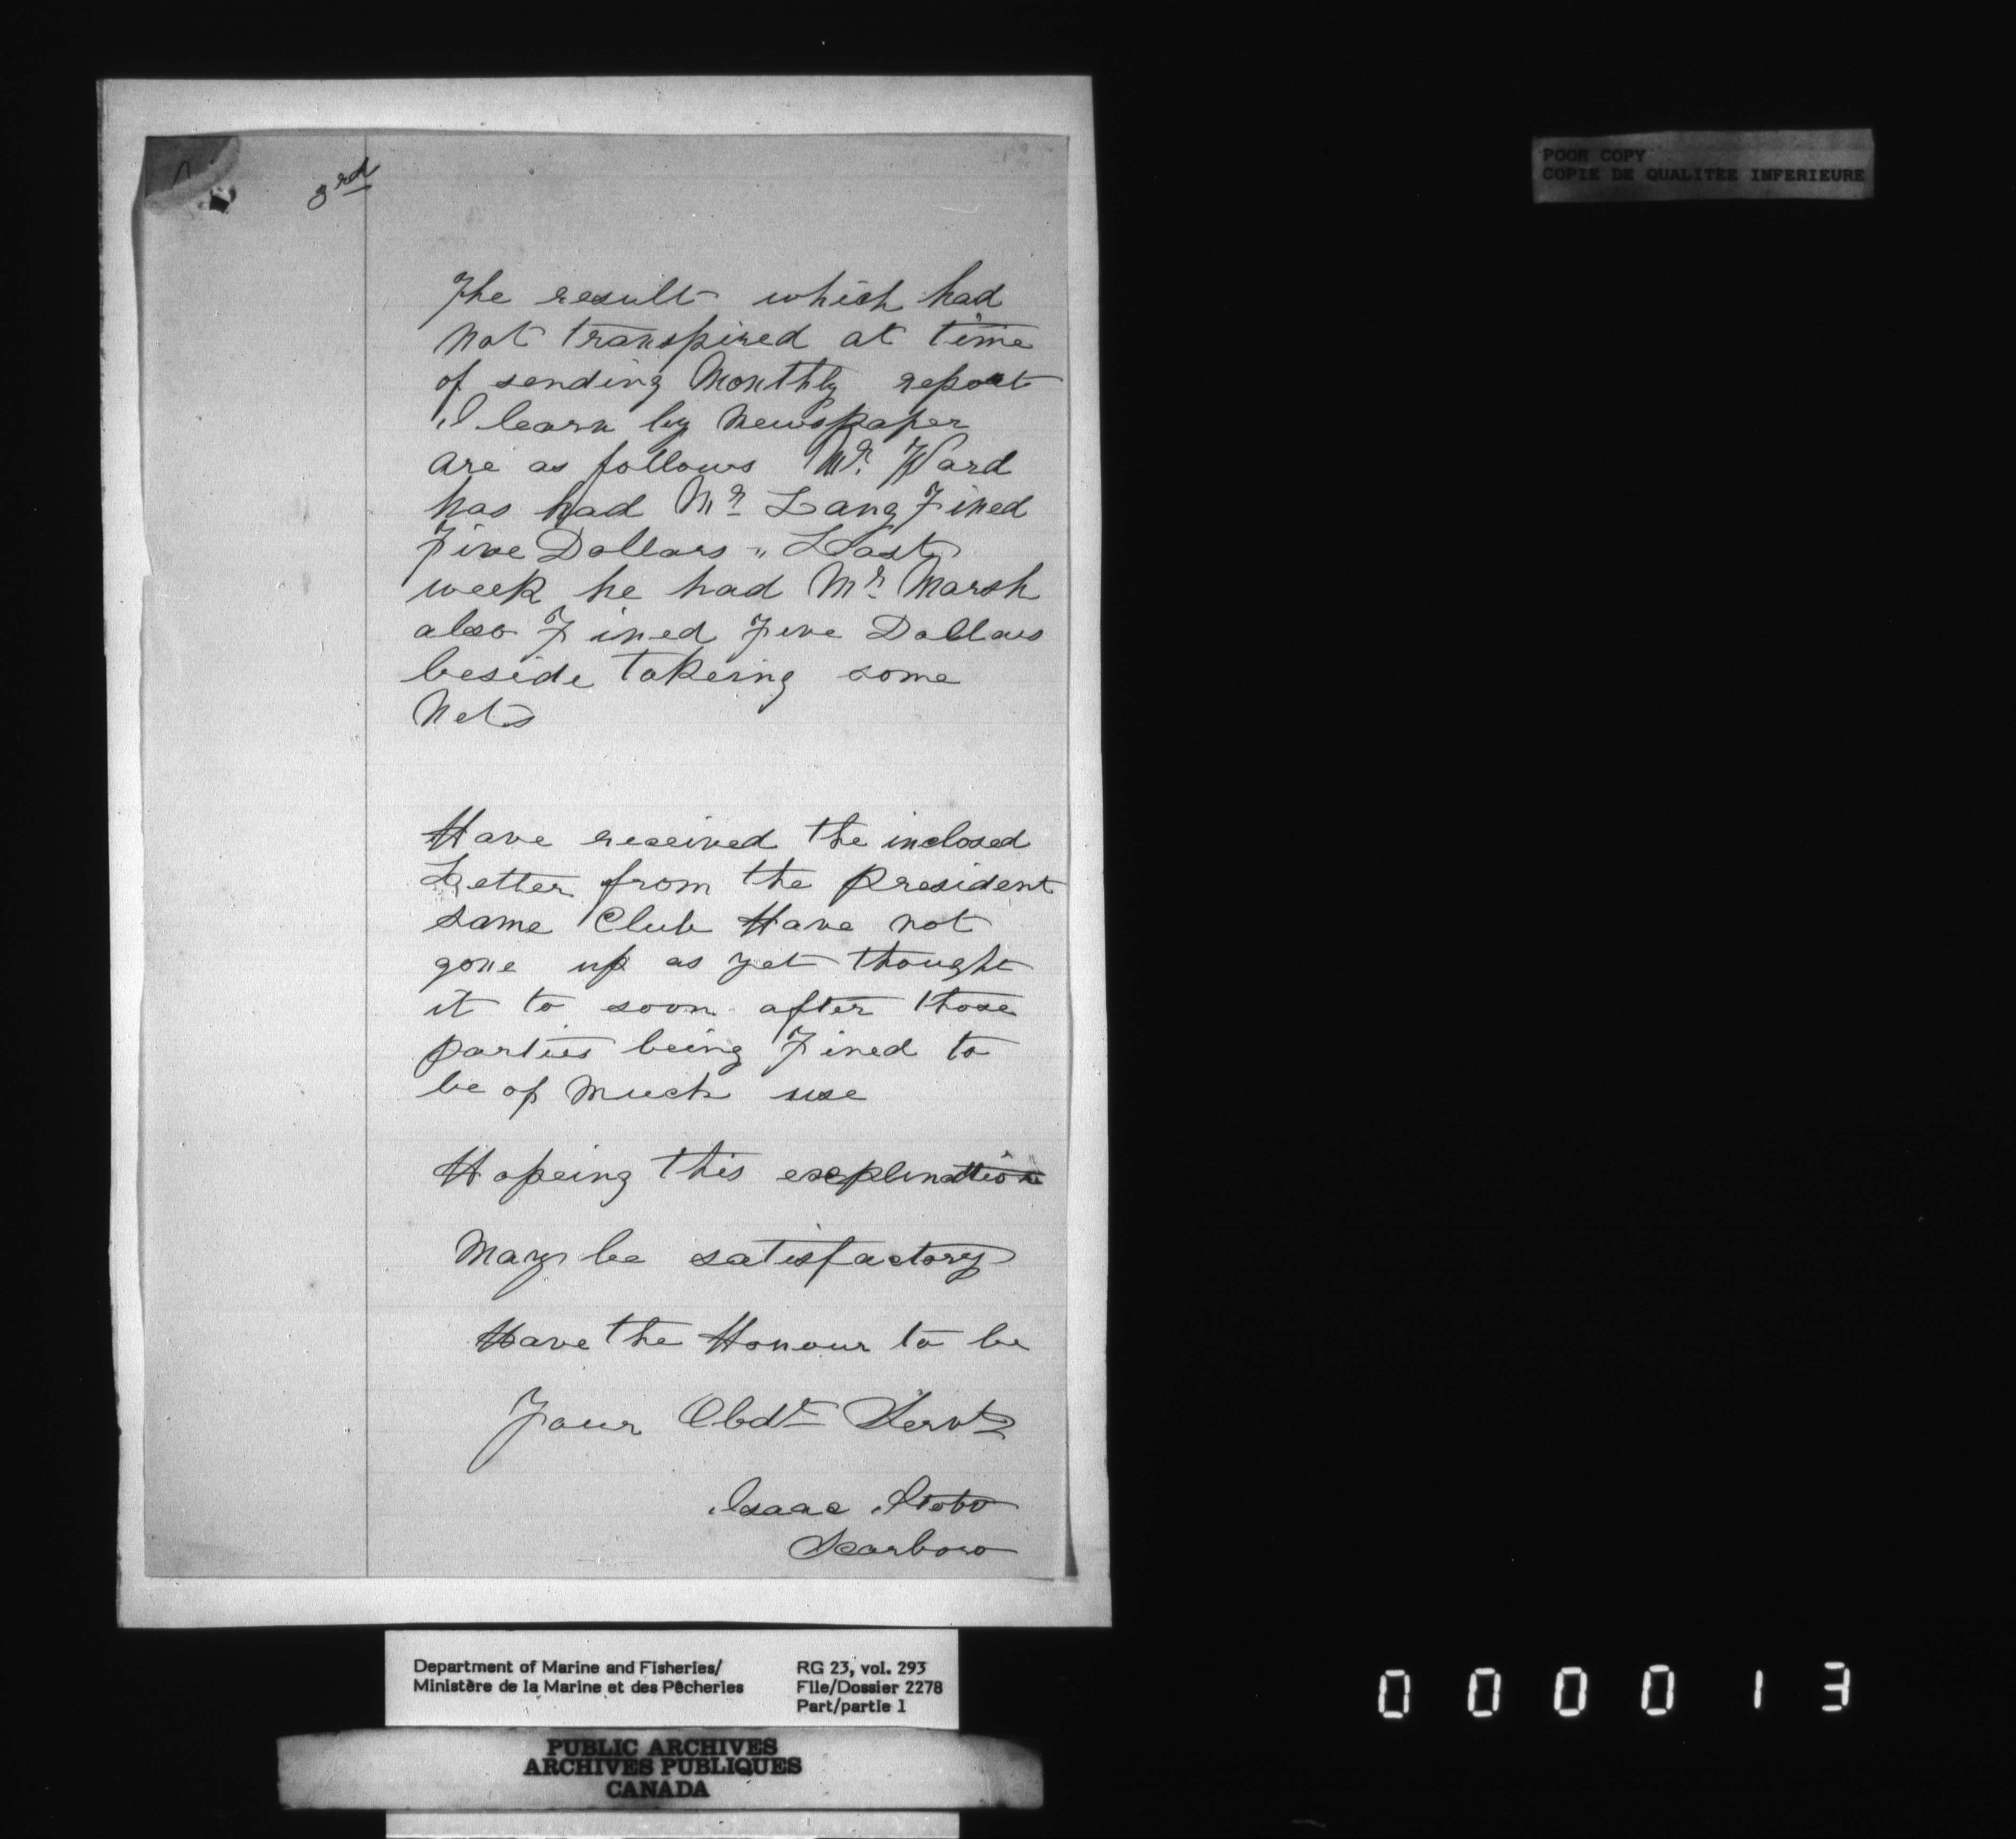 3rd
The result which had
not transpired at time
of sending Monthly report
I learn by Newspaper
are as follows Mr. Ward
has had Mr Lang Fined
Five Dollars " Last
week he had Mr Marsh
also Fined Five Dollars
beside takeing some
Nets
Have received the inclosed
Letter from the President
same Club Have not
gone up as yet thought
it to soon after those
parties being Fined to
be of Much use
Hopeing this explination
May be satisfactory
Have the Honour to be
Your Obdt Servt
Isaac Stobo
Scarboro
POOR COPY
COPIE DE QUALITEE INFERIEURE
Department of Marine and Fisheries/
Ministère de la Marine et des Pêcheries
RG 23, vol. 293
File/Dossier 2278
Part/partie 1
PUBLIC ARCHIVES
ARCHIVES PUBLIQUES
CANADA
000013